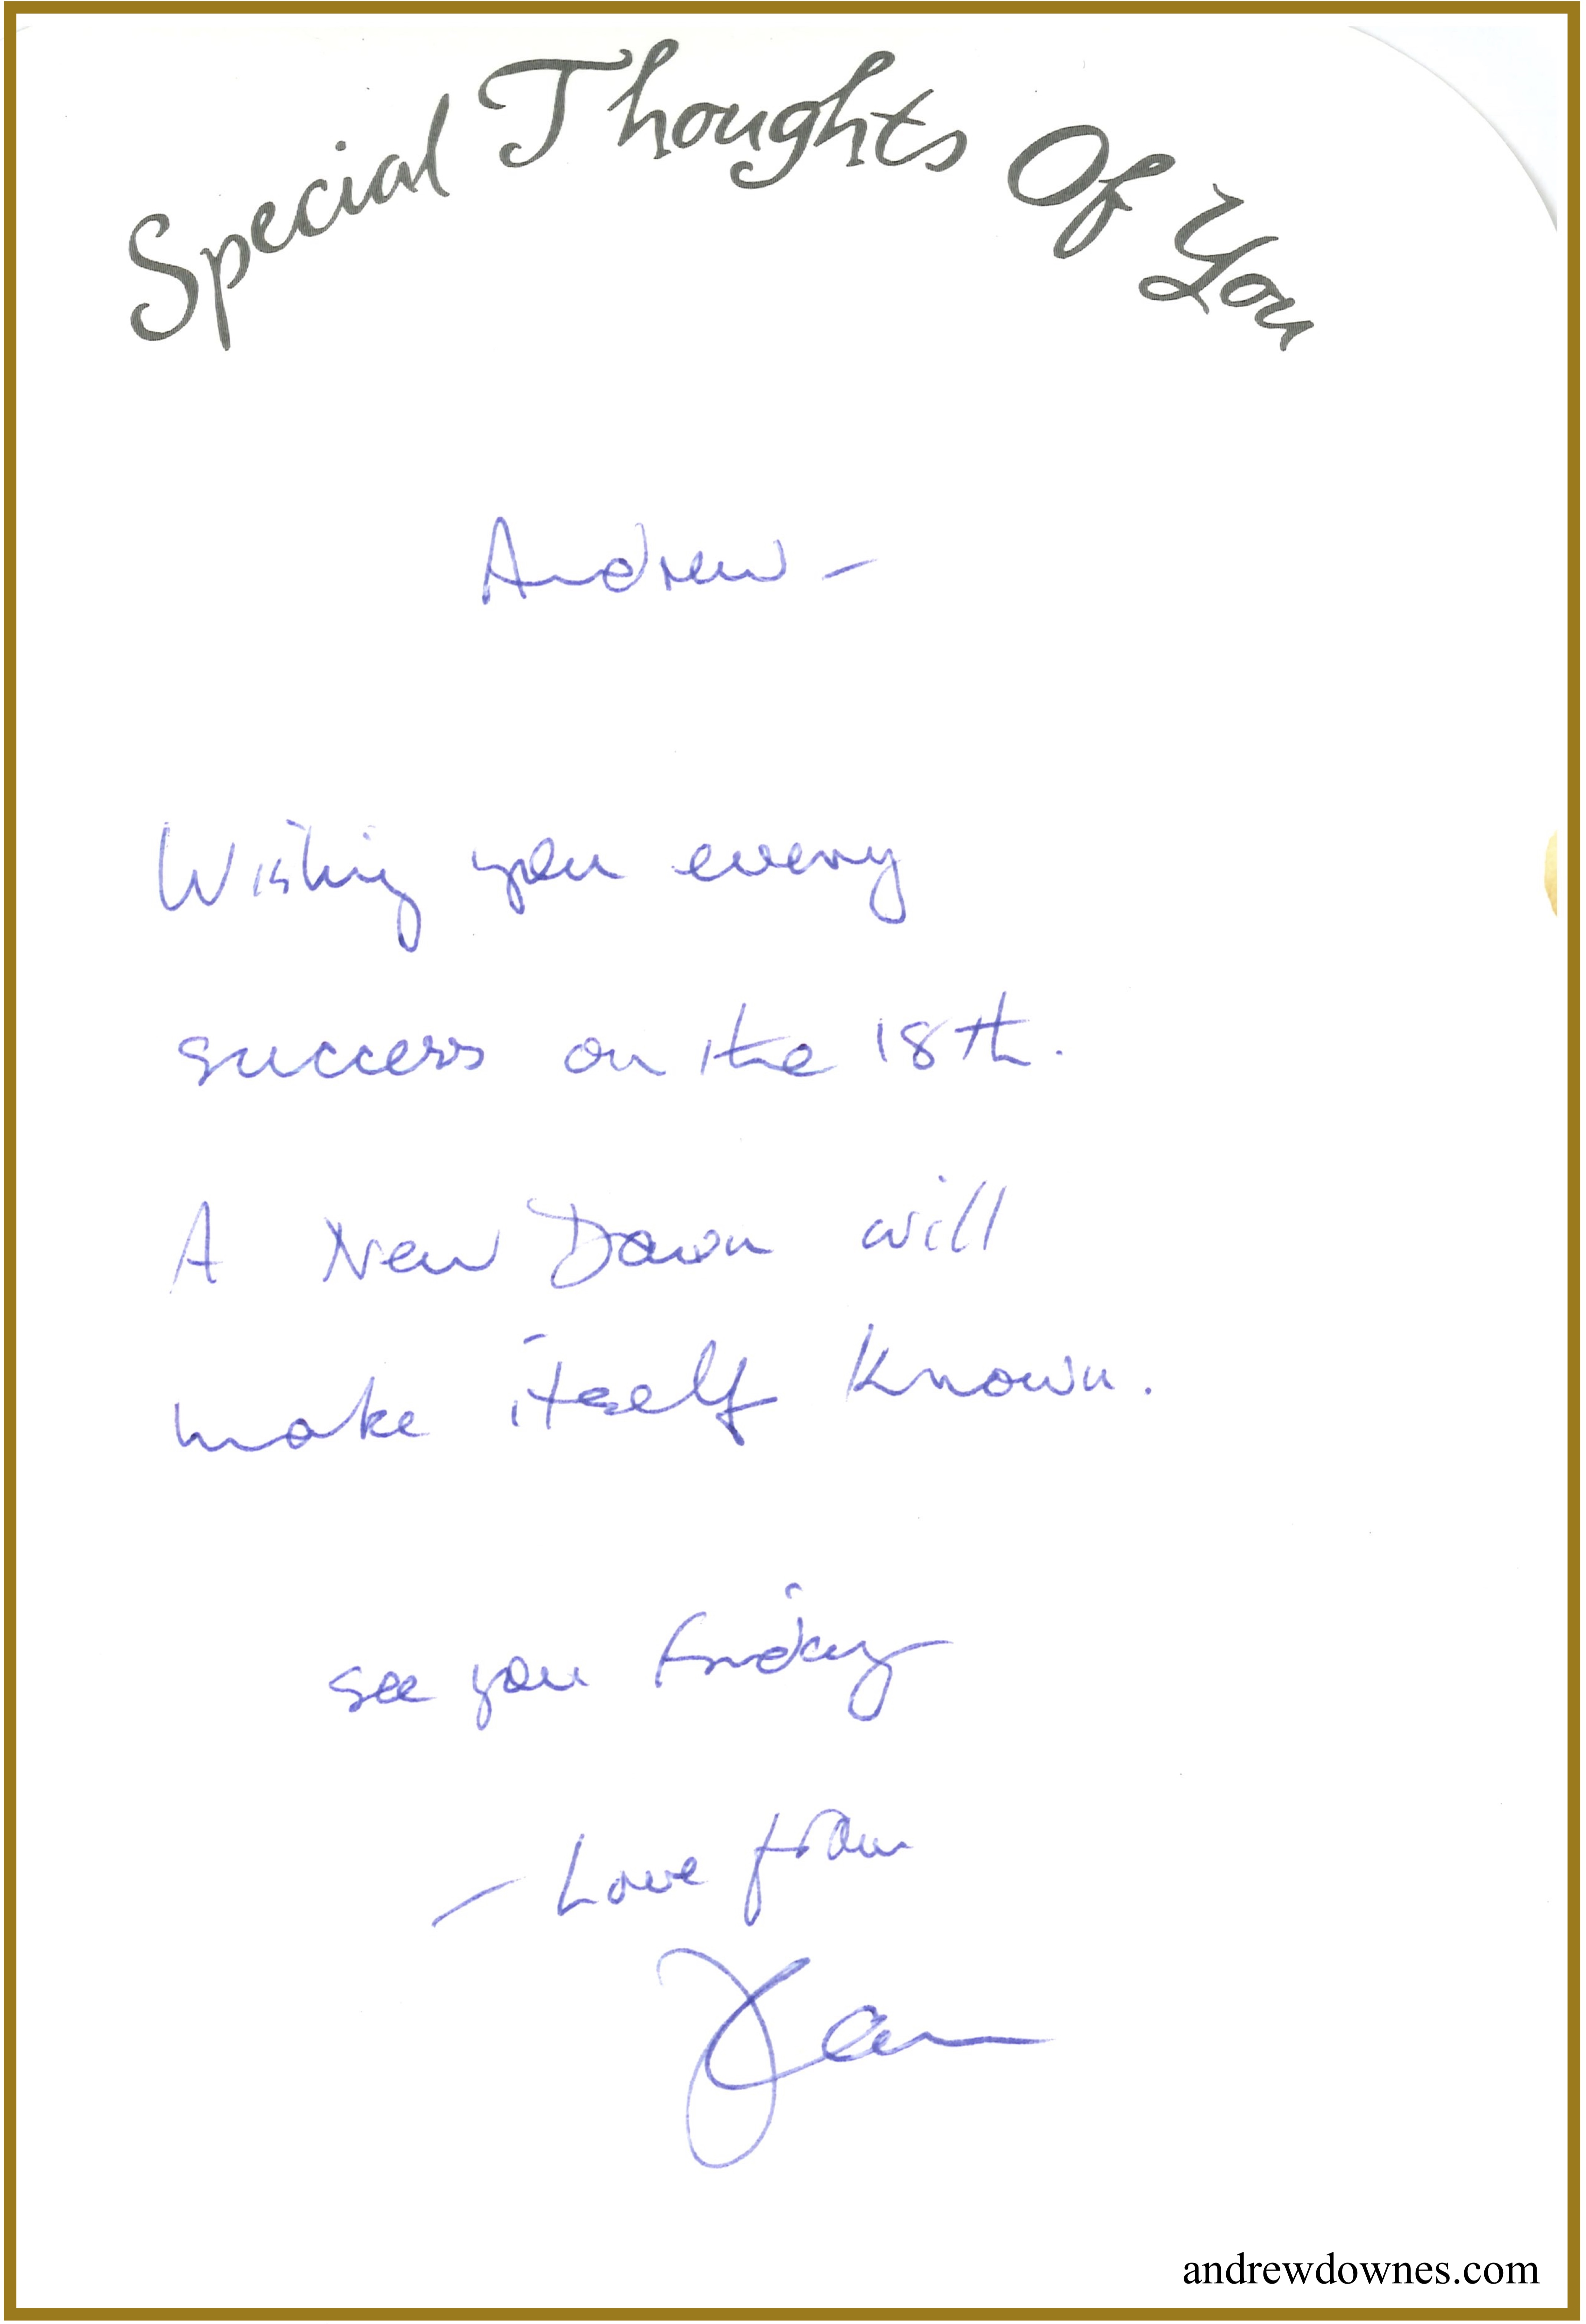 Special Thoughts Of You
Andrew -
Wishing you every
success on the 18th.
A New Dawn will
make itself known.
see you Friday
- Love from
andrewdownes.com